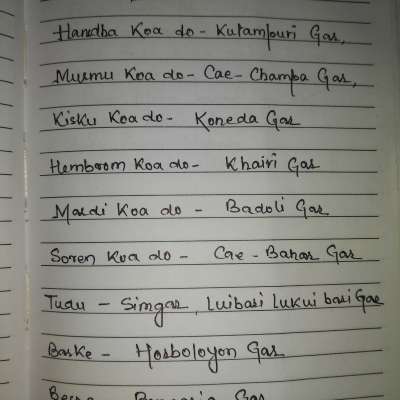 Hansdba Koa do - Kutampuri Gar,
Murmu Koa do - Cae - Champa Gar,
Kisku Koa do - Koneda Gar
Hembrom Koa do - Khairi Gar
Mardi Koa do - Badoli Gar
Soren Koa do - Cae - Bahar Gar
Tudu - Simgar, Luibasi Lukui basi Gar
Baske - Hosboloyon Gar
Gar